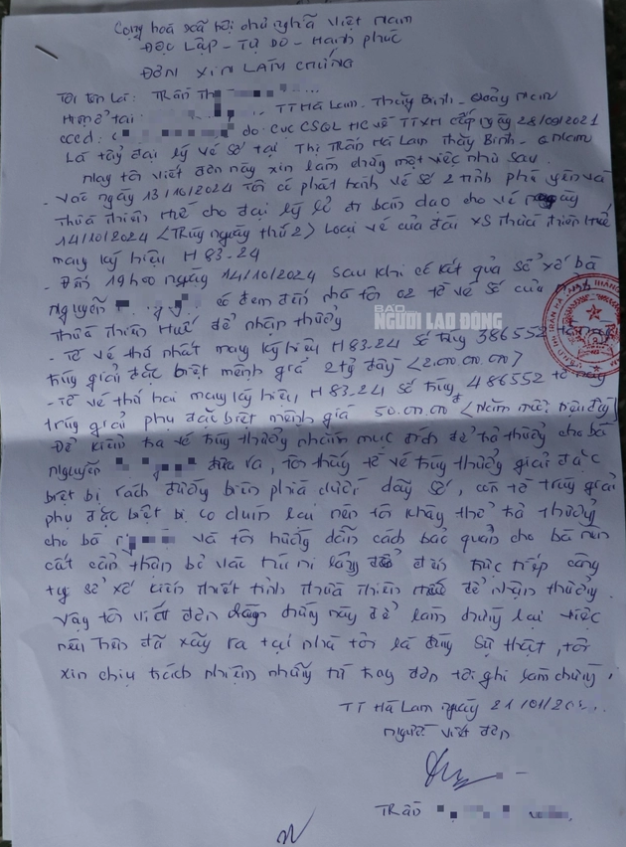 Cộng hoà xã hội chủ nghĩa Việt Nam
Độc Lập - Tự Do - Hạnh phúc
ĐƠN XIN LÀM CHỨNG
Tôi tên là: Trần Th
Hiện ở tại TT Hà Lam - Thăng Bình - Quảng Nam
cccd: do cục CSQL HC về TTXH cấp ngày 28/09/2021
Là đại lý vé số tại Thị Trấn Hà Lam Thăng Bình - Q Nam
Nay tôi viết đơn này xin làm chứng một việc như sau.
- Vào ngày 13/10/2024 Tôi có phát hành vé số 2 tỉnh phú yên và
Thừa Thiên Huế cho đại lý lẻ đi bán dạo cho vé ngày
14/10/2024 <Trúng ngày thứ 2> loại vé của đài XS Thừa Thiên Huế
mang ký hiệu H 83.24
- Đến 19h00 ngày 14/10/2024 sau khi có kết quả sổ xố bà
Nguyễn có đem đến nhà tôi 02 tờ vé số của
Thừa Thiên Huế để nhận thưởng
BÁO
NGƯỜI LAO ĐỘNG
- Tờ vé thứ nhất mang ký hiệu H 83.24 số trúng 386552
trúng giải đặc biệt mệnh giá 2 tỷ đồng <2.000.000.000>
- Tờ vé thứ hai mang ký hiệu H 83.24 số trúng 486552 tờ này
trúng giải phụ đặc biệt mệnh giá 50.000.000đ <Năm mươi triệu đồng>
Để kiểm tra vé trúng thưởng nhằm mục đích để trả thưởng cho bà
Nguyễn đưa ra, tôn thấy tờ vé trúng thưởng giải đặc
biệt bị rách đường biên phía dưới dãy số, còn tờ trúng giải
phụ đặc biệt bị co dúm lại nên tôi không thể trả thưởng
cho bà và tôi hướng dẫn cách bảo quản cho bà nên
cất cẩn thận bỏ vào túi ni lông để đến trực tiếp công
ty sổ xố kiến thiết tỉnh Thừa Thiên Huế để nhận thưởng.
Vậy tôi viết đơn chứng này để làm chứng lại việc
nêu trên đã xảy ra tại nhà tôi là đúng sự thật, tôi
xin chịu trách nhiệm những từ trong đơn tôi ghi làm chứng.
TT Hà Lam ngày 21/01/20
người viết đơn
Trần